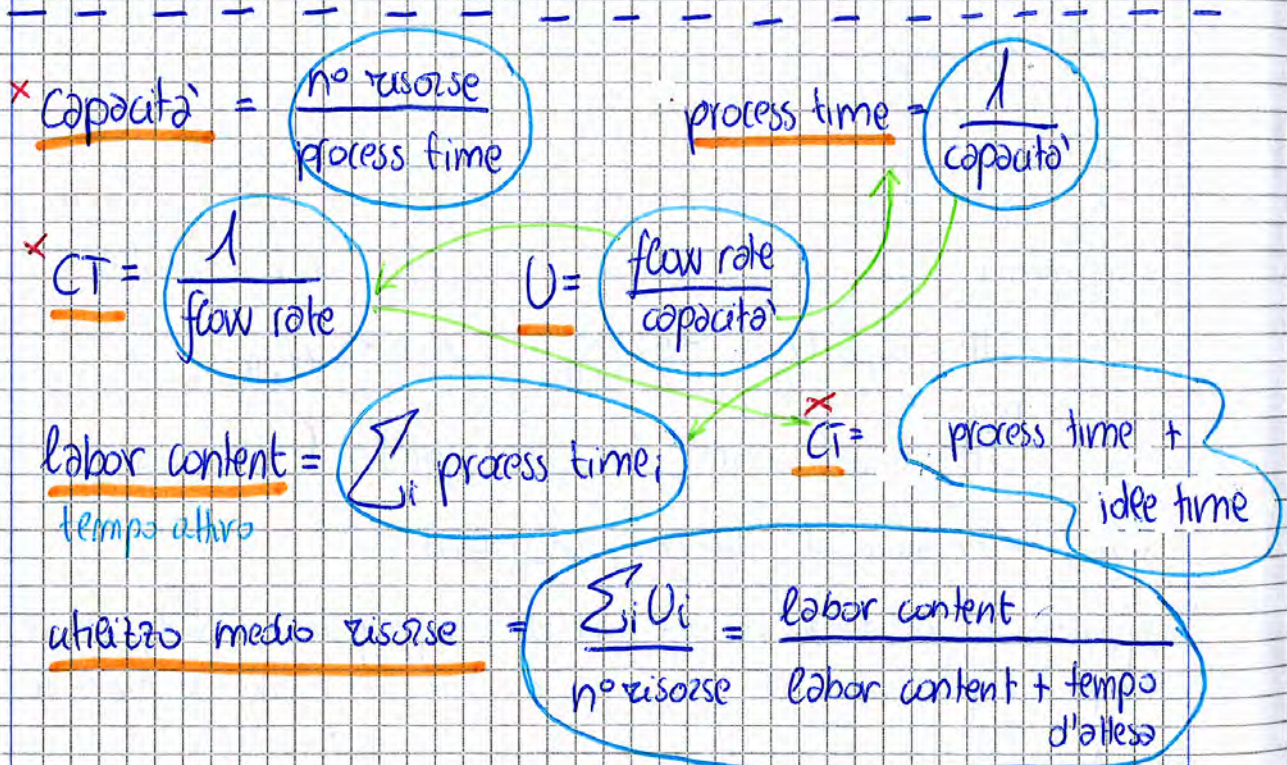 capacità = n° risorse / process time
process time = 1 / capacità
CT = 1 / flow rate
U = flow rate / capacità
labor content = ∑i process timei
tempo attivo
CT = process time +
idle time
utilizzo medio risorse = ∑i Ui / n° risorse = labor content / labor content + tempo
d'attesa